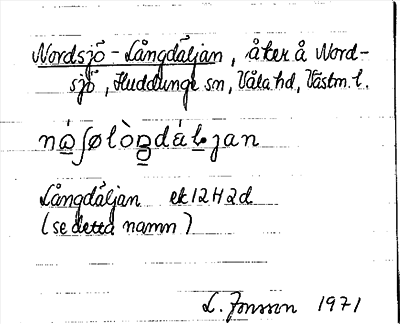 Nordsjö-Långdäljan, åker å Nord-
sjö, Huddunge sn, Våla hd, Västm. l.
nɷ́ʃølòŋdáljan
Långdäljan ek 12 H 2 d
(se detta namn)
L. Jonsson 1971